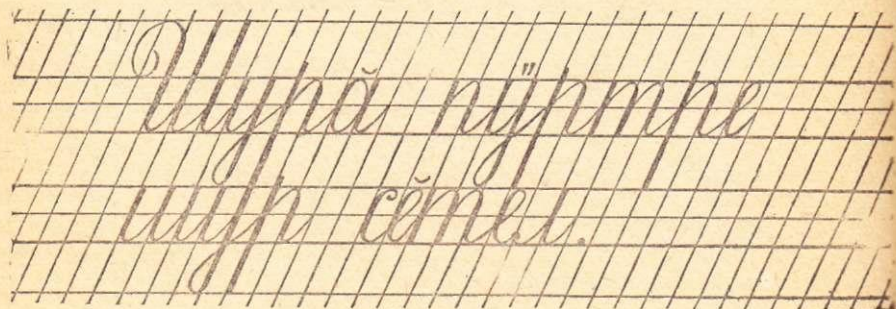 Шурӑ пӳртре
шур сӗтел.